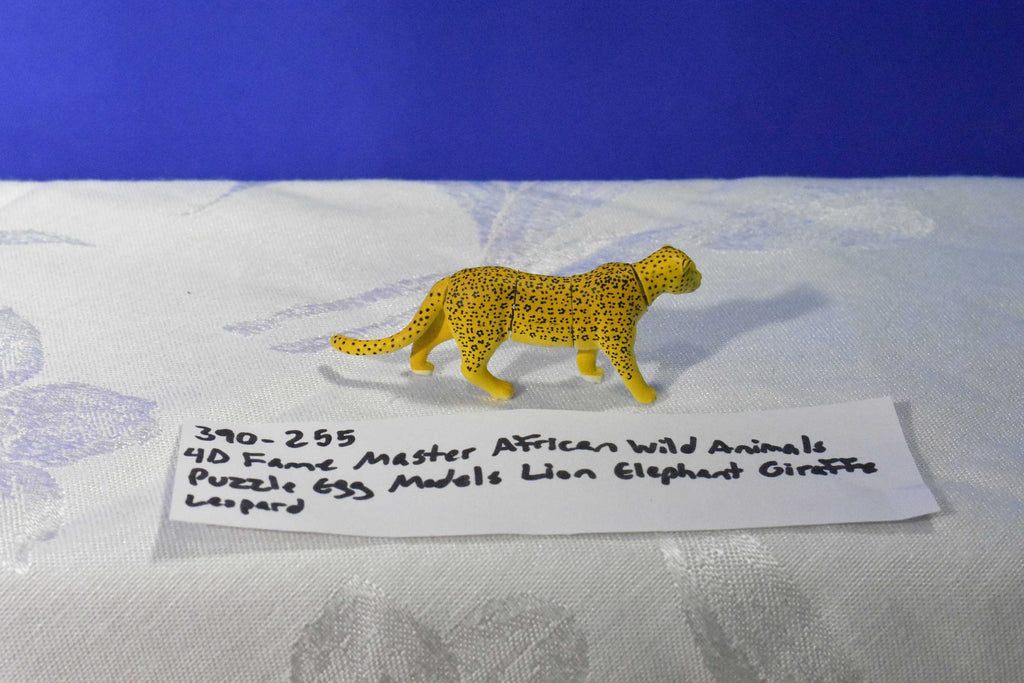 390-255
4D Fame Master African Wild Animals
Puzzle Egg Models Lion Elephant Giraffe
Leopard